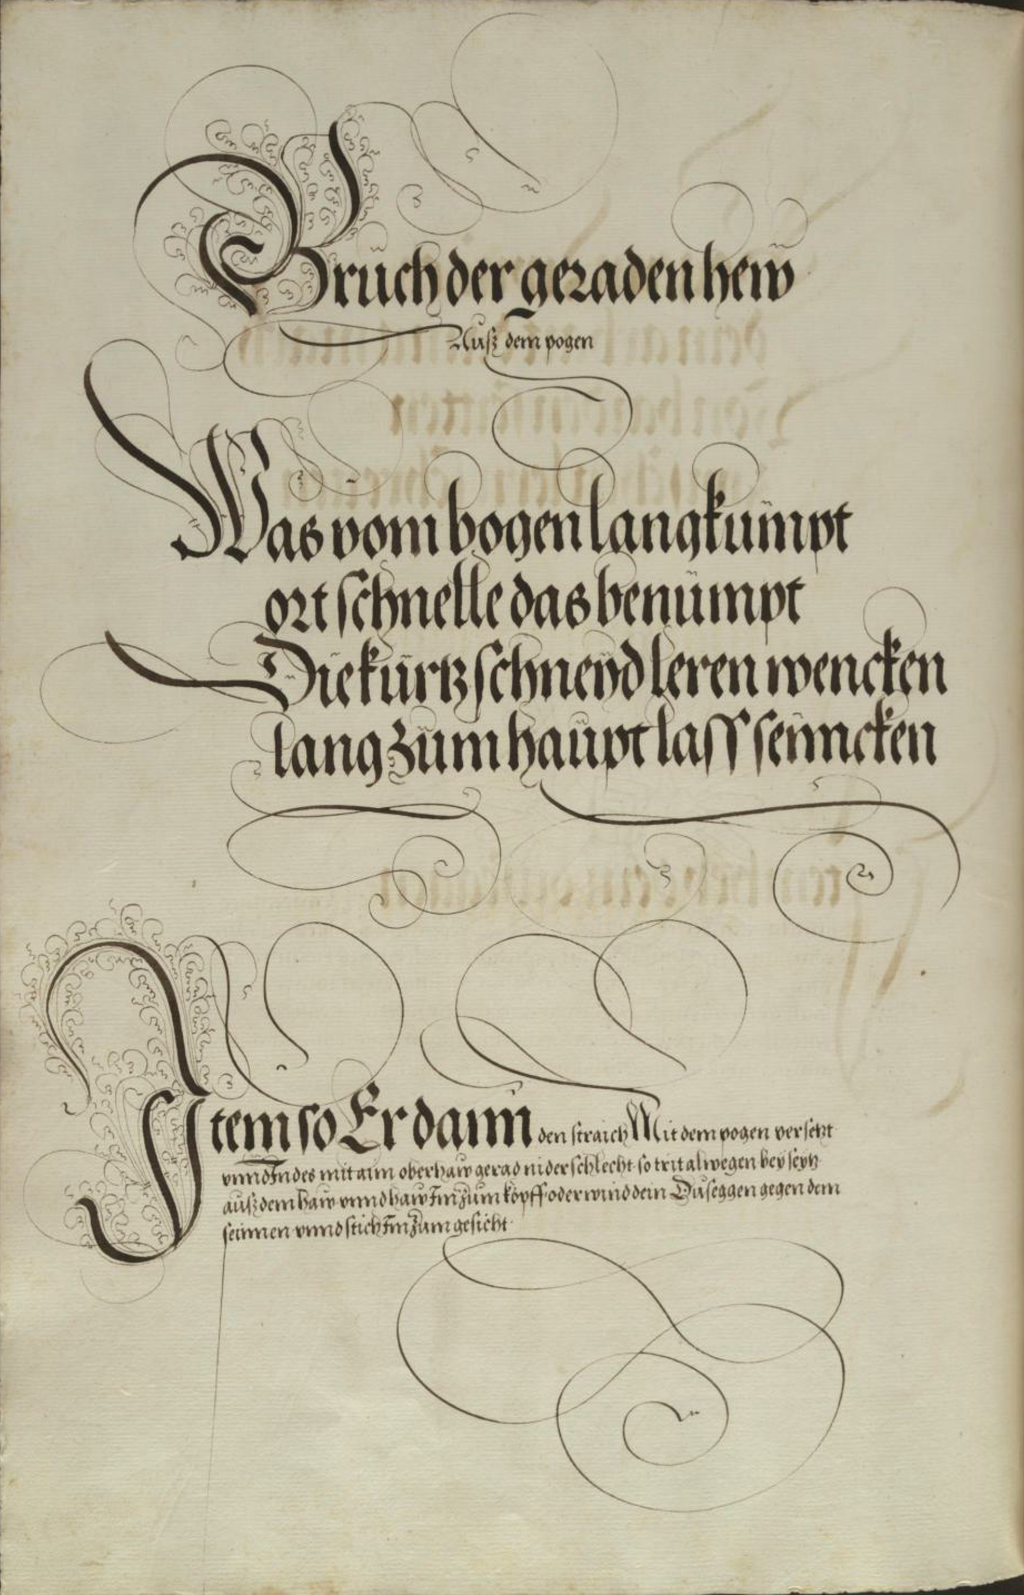 Bruch der geraden hew
Auß dem pogen
Was vom bogen lang kumpt
ort schnelle das benümpt
Die kürtz schneyd leren wencken
lang zum haupt lass seinncken
Item so Er dann den straich Mit dem pogen versetzt
vnnd Indes mit aim oberhaw gerad niderschlecht so trit alwegen bey seytz
auß dem haw vnnd haw Im zum kopff oder wind dein Duseggen gegen dem
seinnen vnnd stich Im zum gesicht